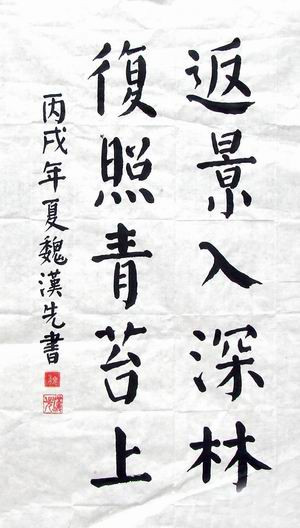 返景入深林
復照青苔上
丙戌年夏魏漢先書